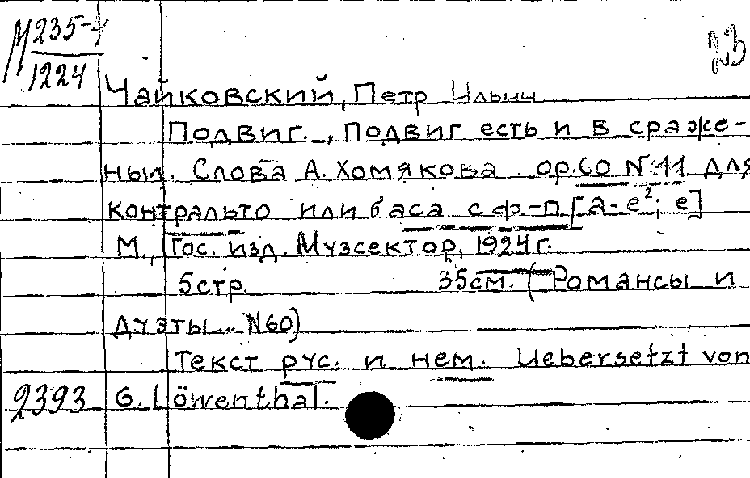 М 235-4
1224
23
Чайковский, Петр Ильич
Подвиг. „Подвиг есть и в сраже-
ньи. Слова А. Хомякова op.60 №11 для
контральто или баса с ф.-п. [a-e²; e]
М., Гос. изд. Музсектор, 1924 г.
5 стр. 35 см. (Романсы и
дуэты.. №60)
Текст рус. и нем. Uebersetzt von
2393 G. Löwenthal.